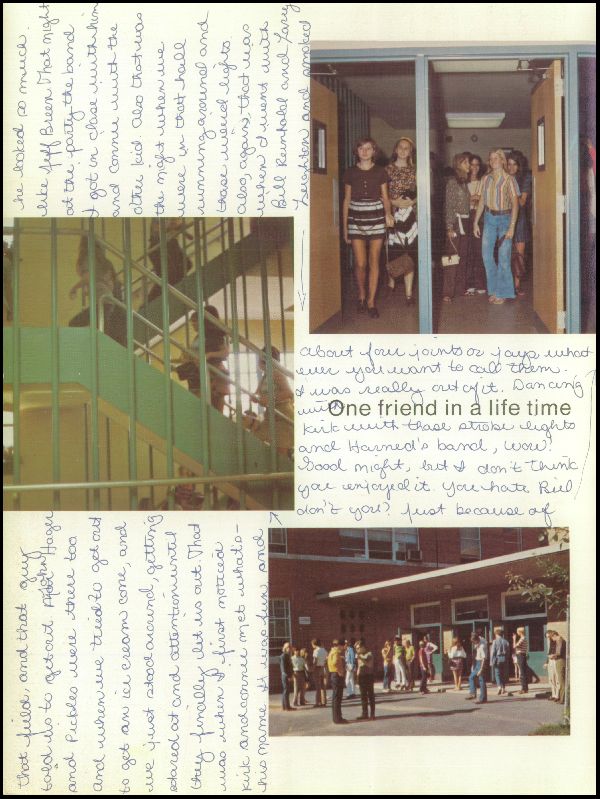 he looked so much
like Jeff Breen. That night
at the party the band
I got in close with him
and connie with the
other kid. also that was
the night when we
were in that hall
running around and
those weird lights.
also, again, that was
when I went with
Bill Reinhold and Larry
Leighton and smoked
about four joints or jays what
ever you want to call them.
I was really out of it. Dancing
with
One friend in a life time
kirk with those strobe lights
and Harned's band, wow!
Good night, but I don't think
you enjoyed it. You hate Bill
don't you? Just because of
that field, and that guy
told us to get out. Hager
and Pickles were there too
and when we tried to get out
to get an ice cream cone, and
we just stood around, getting
stared at and attention until
they finally let us out. That
was when I first noticed
kirk and connie met whats-
his name. It was fun, and